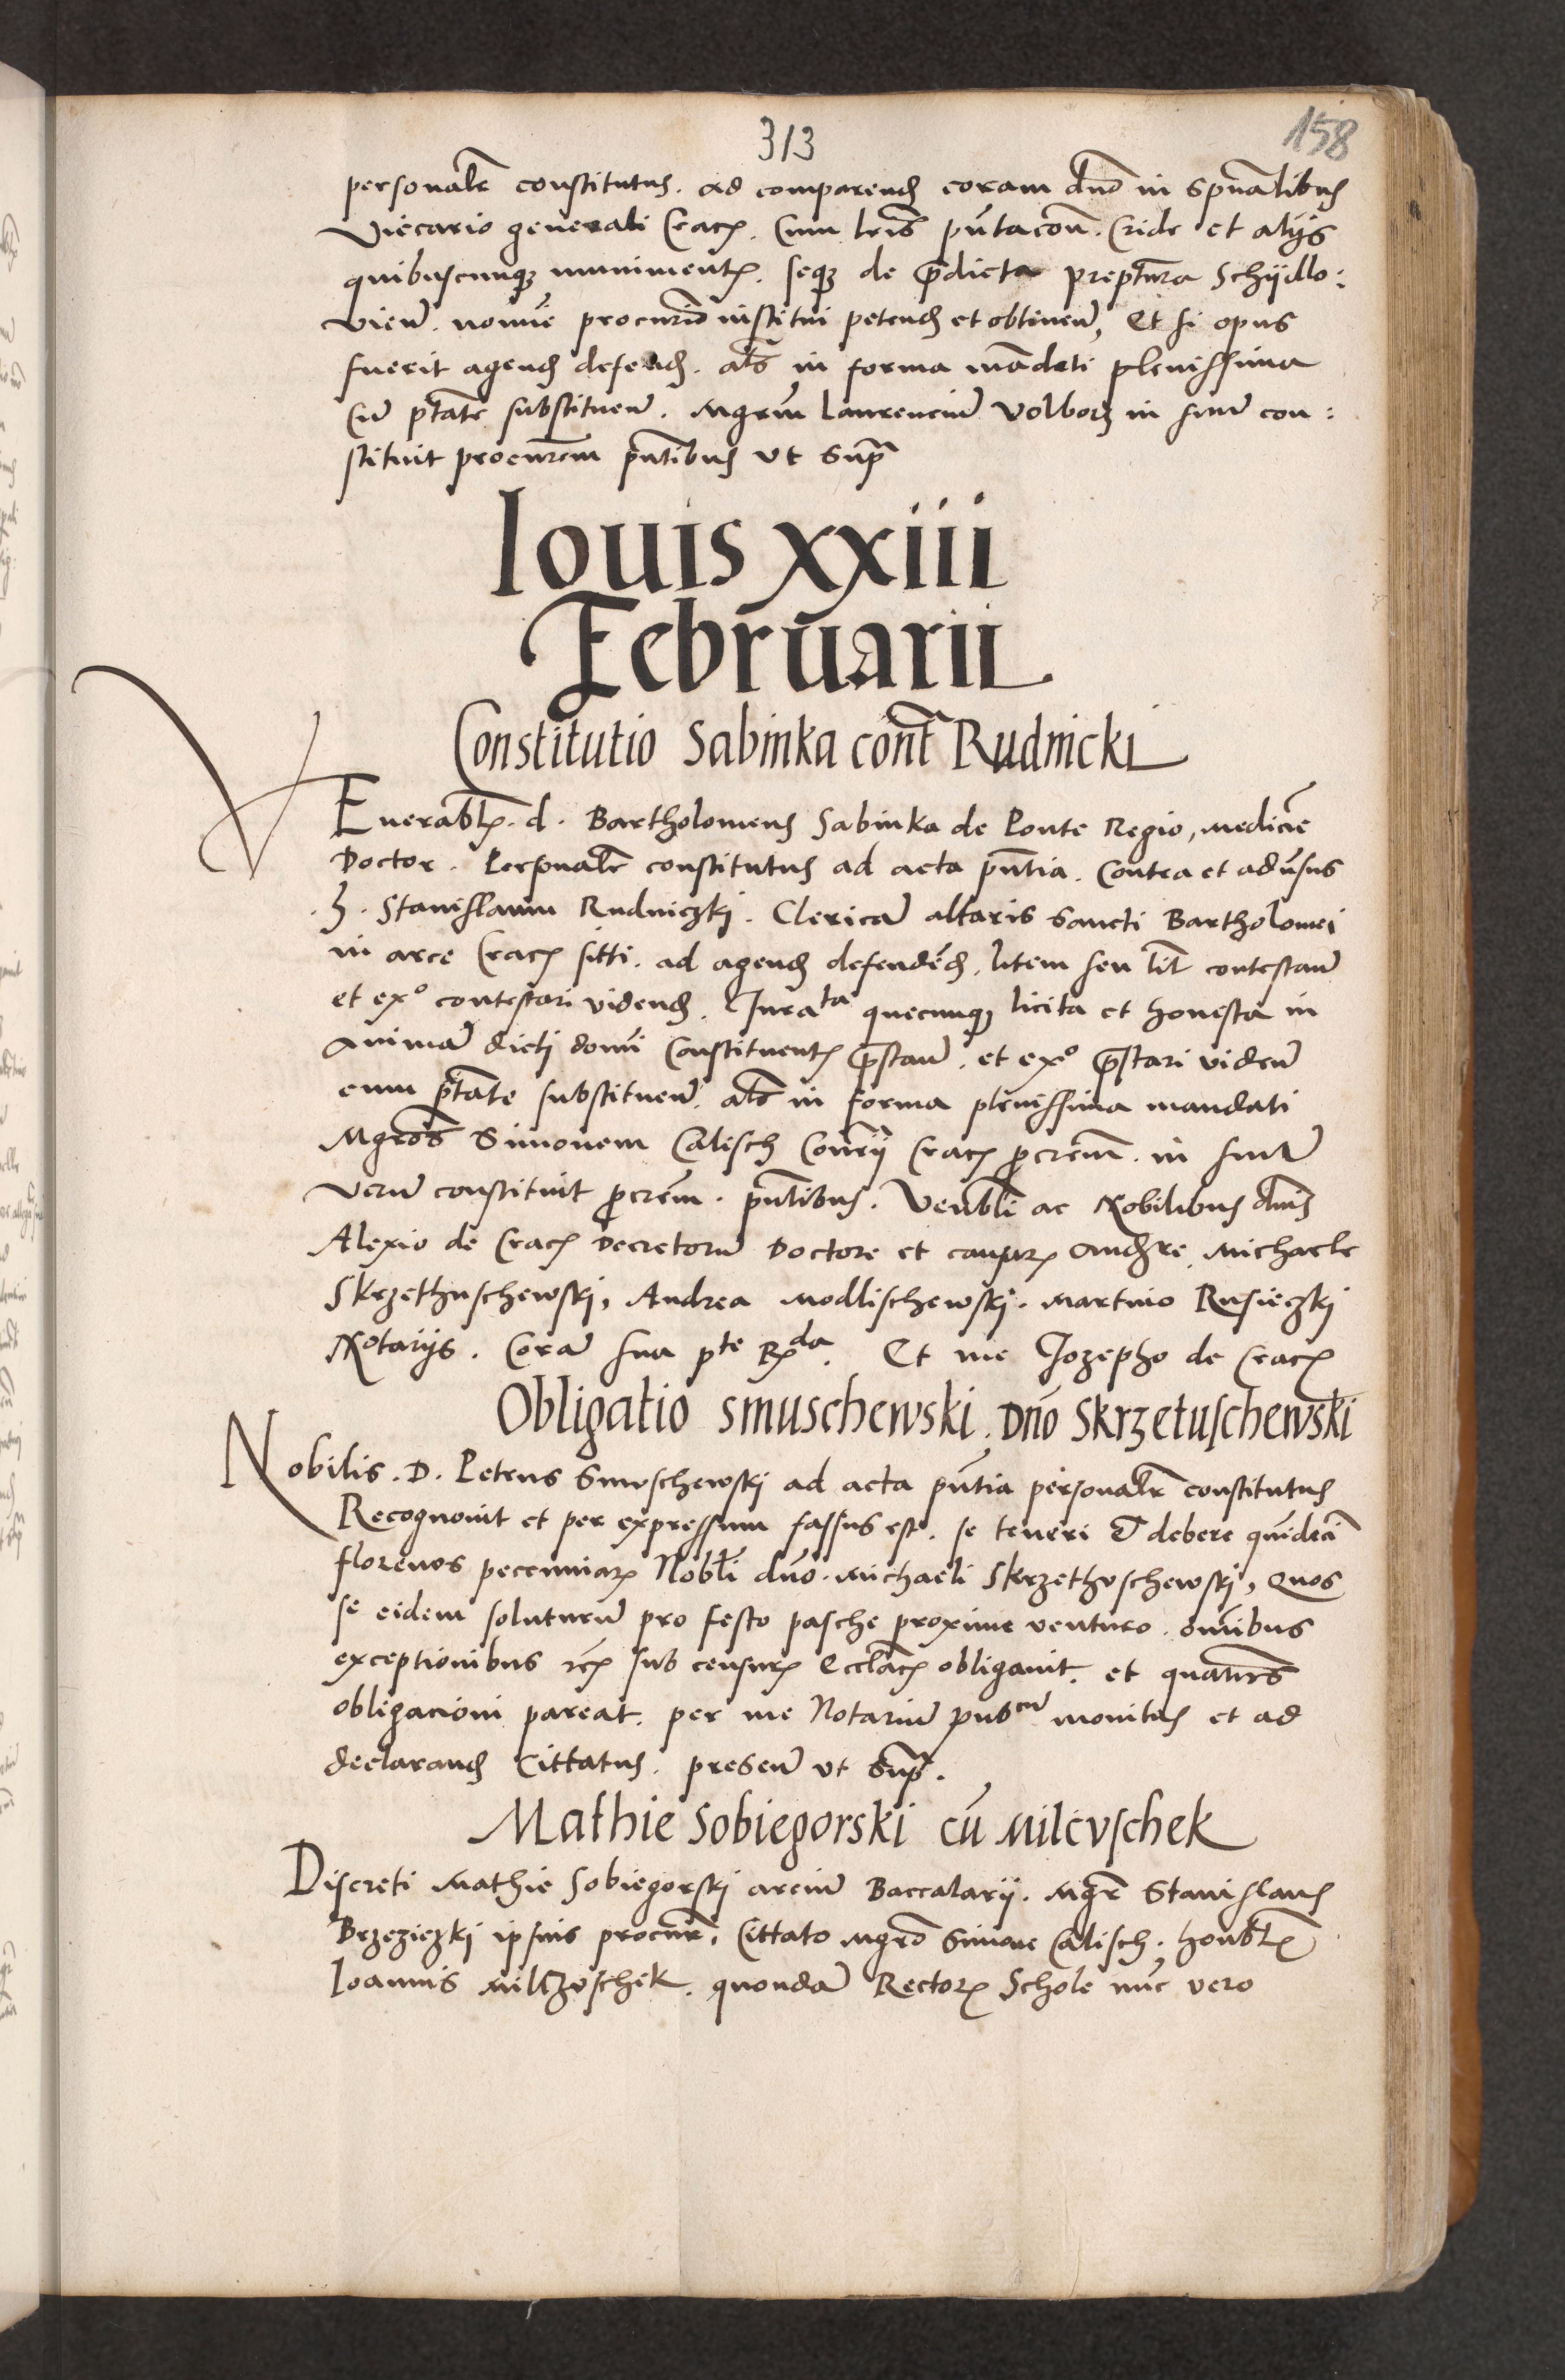 313
158
personalr constitutus. ad comparend coram dno in spualibus
Viecario generali Crac. Cum lris puta con. Cride et alijs
quibuscunq muniment. seq de pdicta preptura Schijdlo:
vien. nomie procurio institui petend et obtinen, Et si opus
fuerit agend defend. als in forma madati plenissima
Cu ptate substituen. Mgrm Laurenciu Volborz in sum con:
stituit procurem pntibus ut supra
Iouis xxiii
Februarii
Constitutio Sabinka cont Rudnicki
VEnerabl. d. Bartholomeus Sabinka de Ponte Regio, medicie
Doctor. Persnalr constitutus ad acta pntia. Contra et adusus
h. Stanislaum Rudniczki. Clericu altaris Sancti Bartholomei
in arce Crac sitti. ad agend defended, litem seu lit contestan
et exo contestari vidend. Jurata quecunq licita et honesta in
anima dicti domi Constituent prestan. et exo prestari viden
cum ptate substituen. als in forma plenissima mandati
Mgros Simonem Calisch Consrij Crac procrem. in sum
veru constituit procrem. pntibus. Venbli ac Nobilibus dnis
Alexio de Crac Decretoru Doctore et causar audre, Michaele
Skrzethuschewski, Andrea Modlischewski. Martino Rusieczki
Notarijs. Cora sua pte Rda. Et me Jozepho de Crac
Obligatio smuschewski. Dno Skrzetuschewski
Nobilis. D. Petrus Smuschewski ad acta pntia personalr constitutus
Recognouit et per expressum fassus est. se teneri et debere quideci
florenos pecunniar Nobli dno. Michaeli Skrzethuschewski, quos
se eidem soluturu pro festo pasche proxime venturo. omibus
exceptionibus rc sub censur Ecclac obligauit. et quatus
obligacioni pareat. per me Notariu pubcu monitus et ad
declarand Cittatus. presen ut supra.
Mathie Sobiegorski cu Milcuschek
Discreti Mathie Sobiegorski arciu Baccalarij. Mgr Stanislaus
Brzeziczki ipsius procur, Cittato Mgro Simone Calisch. honbl
Ioannis Milczuschek. quonda Rector Schole nuc vero